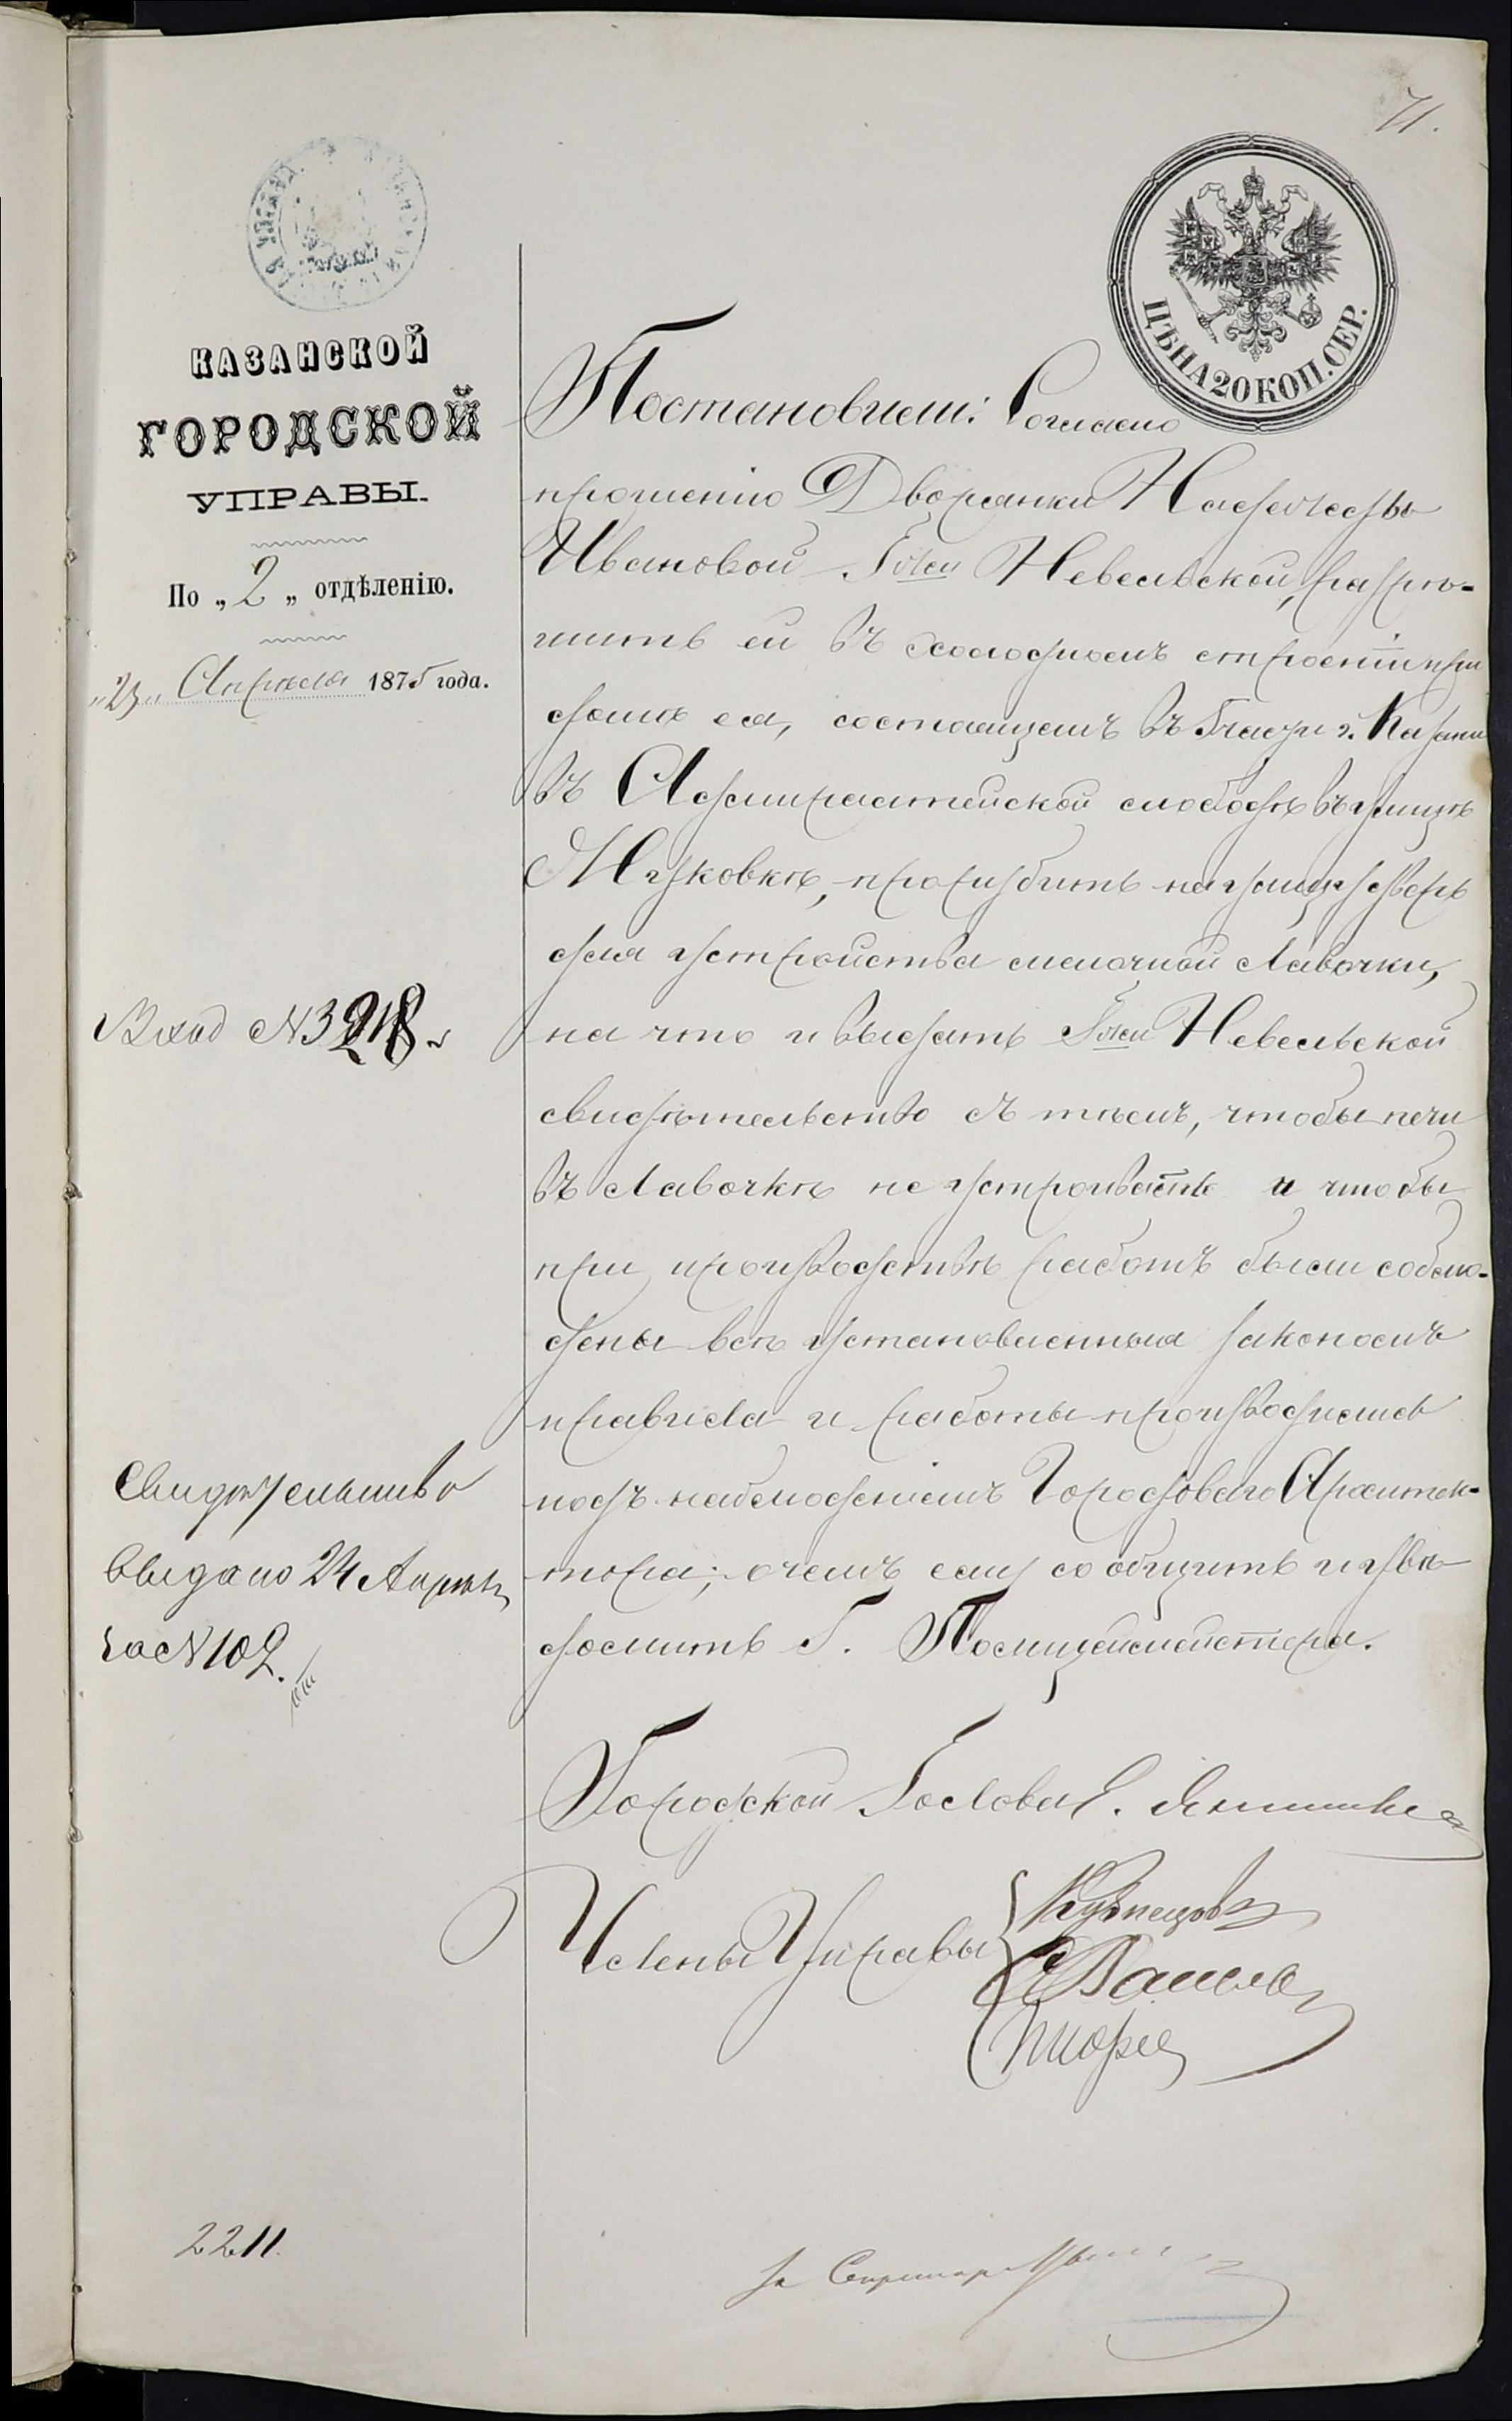 71.
ЦѢНА 20 КОП. СЕР.
КАЗАНСКОЙ
ГОРОДСКОЙ
УПРАВЫ.
По „2„ отдѣленію.
„23„ Апрѣля 1875 года.
Вход №3218
Свидѣтельство
выдано 24 Апрѣля
за №102.
2211.
Постановили: Согласно
прошенію Дворянки Надежды
Ивановой Г̲о̲ж̲и̲ Невельской, разрѣ-
шить ей въ холодномъ строеніи при
домѣ ея, состоящемъ въ 5 части г. Казани
въ Адмиралтейской слободѣ въ улицѣ
Московкѣ, прорубить на улицу дверь
для устройства мелочной лавочки,
на что и выдать Гжи Невельской
свидѣтельство съ тѣмъ, чтобы печи
въ лавочкѣ не устроивать и чтобы
при производствѣ работъ были соблю-
дены всѣ установленныя закономъ
правила и работы производились
подъ наблюденіемъ Городоваго Архитек-
тора; о чемъ ему сообщить и увѣ-
домить Г. Полицеймейстера.
Городской Голова Е. Янишевс
Члены Управы
Кузнецовъ
За Секретаря